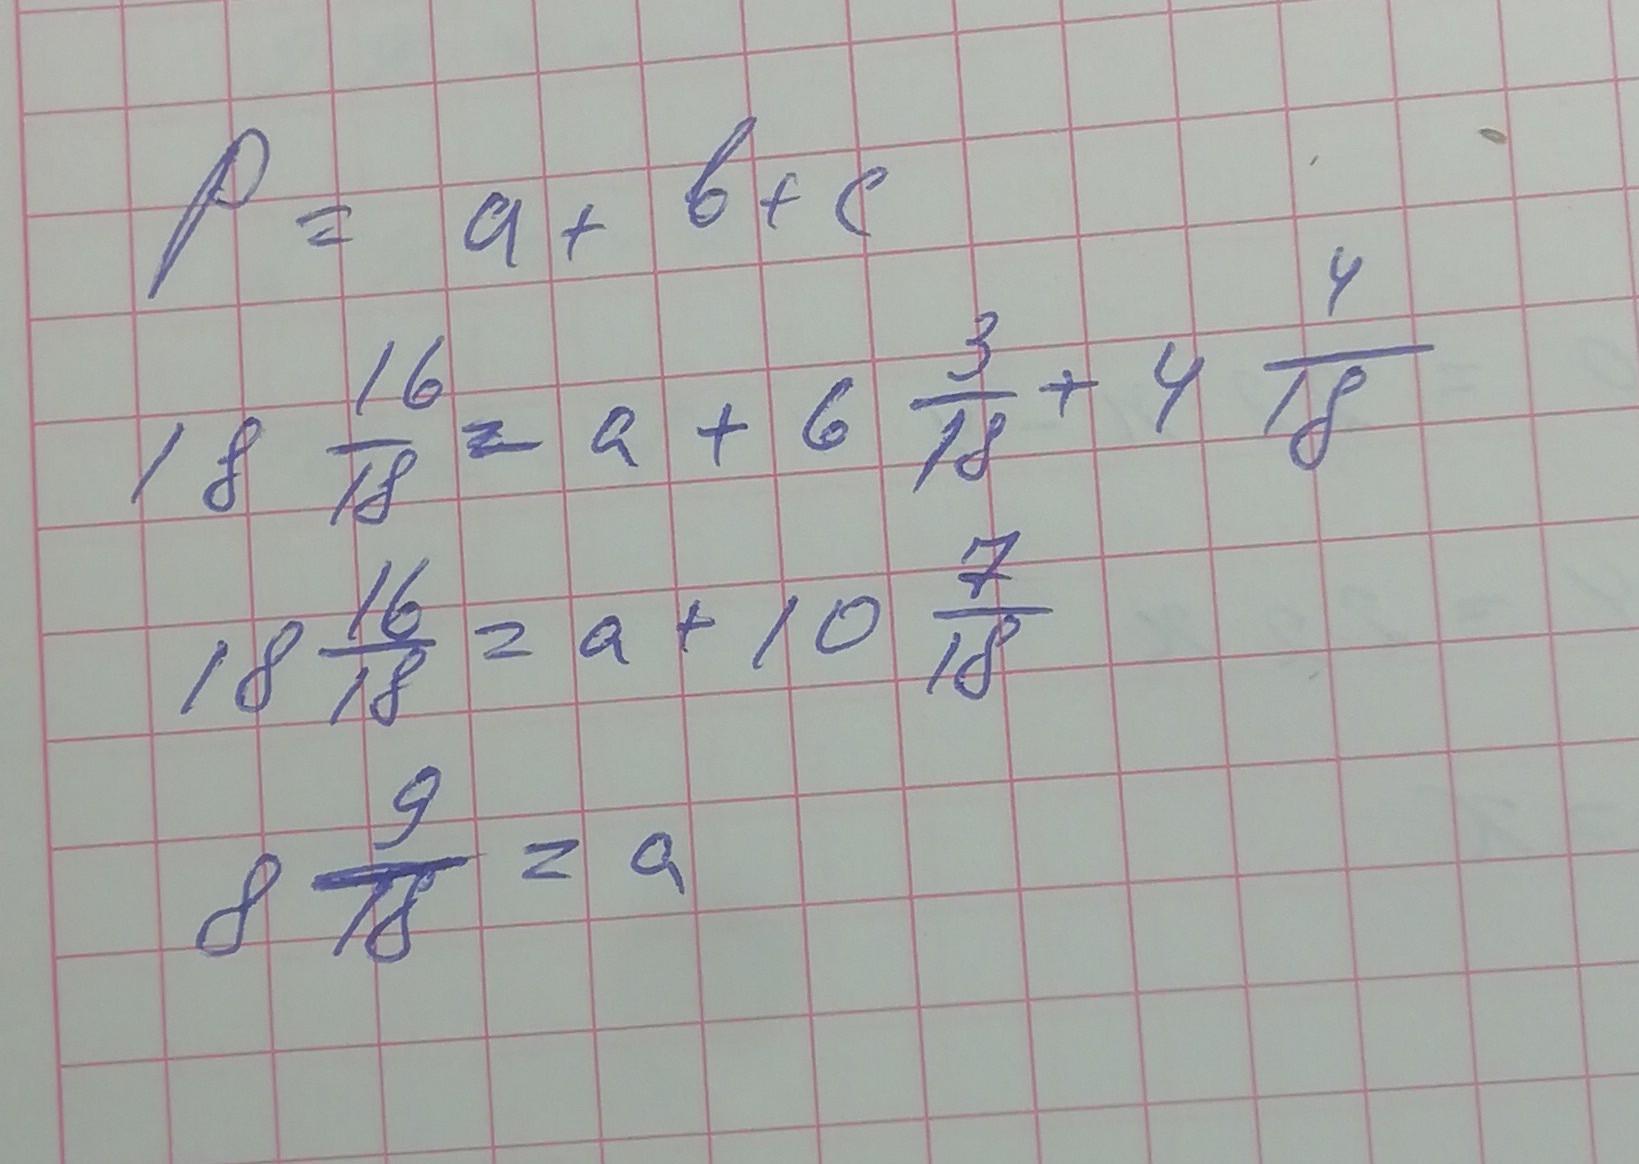 P = a + b + c
18 16/18 = a + 6 3/18 + 4 4/18
18 16/18 = a + 10 7/18
8 9/18 = a